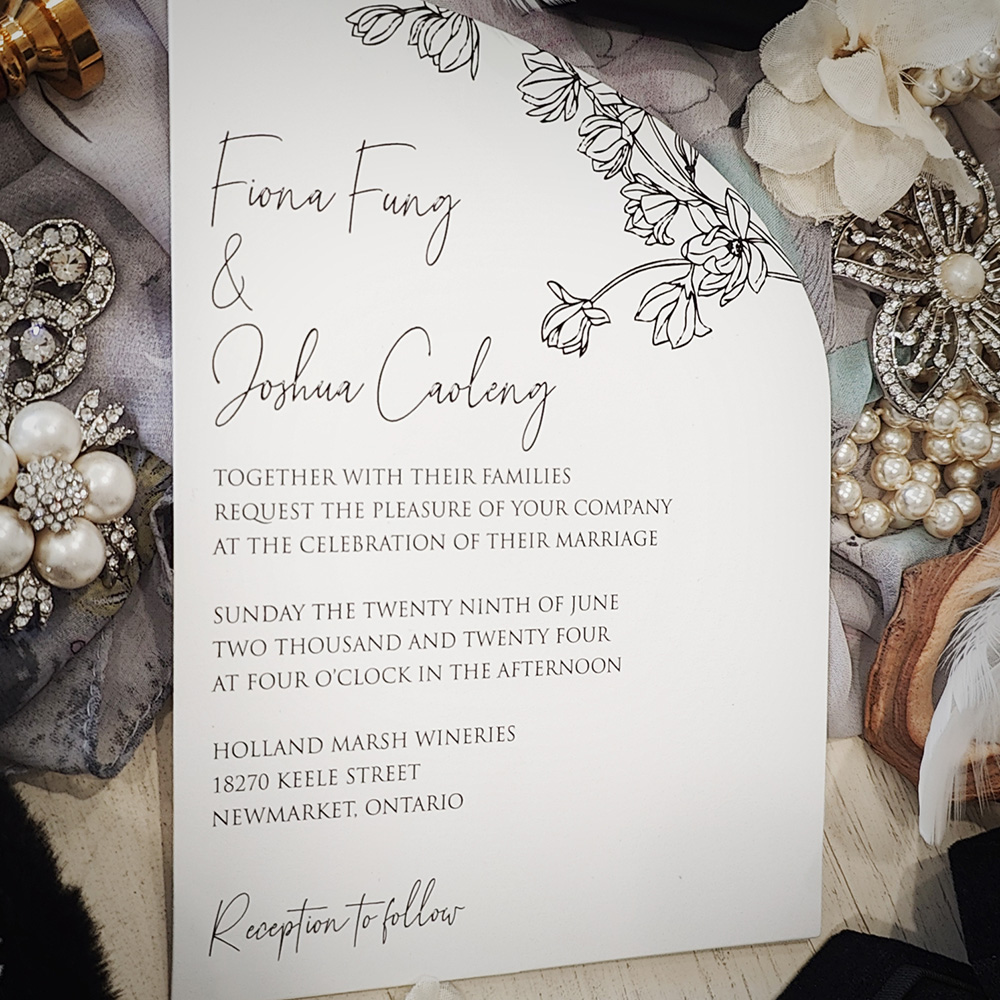 Fiona Fung
&
Joshua Caoleng
TOGETHER WITH THEIR FAMILIES
REQUEST THE PLEASURE OF YOUR COMPANY
AT THE CELEBRATION OF THEIR MARRIAGE
SUNDAY THE TWENTY NINTH OF JUNE
TWO THOUSAND AND TWENTY FOUR
AT FOUR O'CLOCK IN THE AFTERNOON
HOLLAND MARSH WINERIES
18270 KEELE STREET
NEWMARKET, ONTARIO
Reception to follow